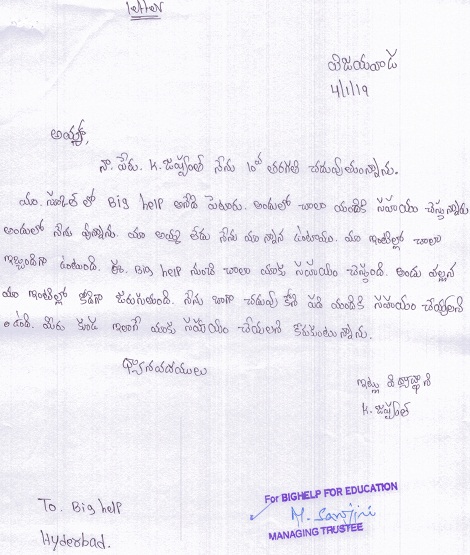 letter
విజయవాడ
4/1/19
అయ్యా,
నా. పేరు. K. నేను 10వ తరగతి చదువుతున్నాను.
మా. స్కూల్ లో Big help అనేది పెటారు. అందులో చాలా మందికి సహాయం చేస్తున్నారు
అందులో నేను వున్నాను. మా అమ్మ లేదు నేను మా నాన్న ఉంటాము. మా ఇంటిల్లో చాలా
ఇబ్బందిగా ఉంటుంది. ఈ. Big help నుంచి చాలా మాకు సహాయం చేస్తుంది. అందు వల్లన
మా ఇంటిల్లో జరుగుతుంది. నేను బాగా చదువు కోని పది మందికి సహాయం చేయాలని
ఉంది. మీరు కుడ ఇలాగే మాకు సహాయం చేయలని కోరుకుంటున్నాను.
ఇట్లు
K.
To. Big help
Hyderbad.
For BIGHELP FOR EDUCATION
MANAGING TRUSTEE